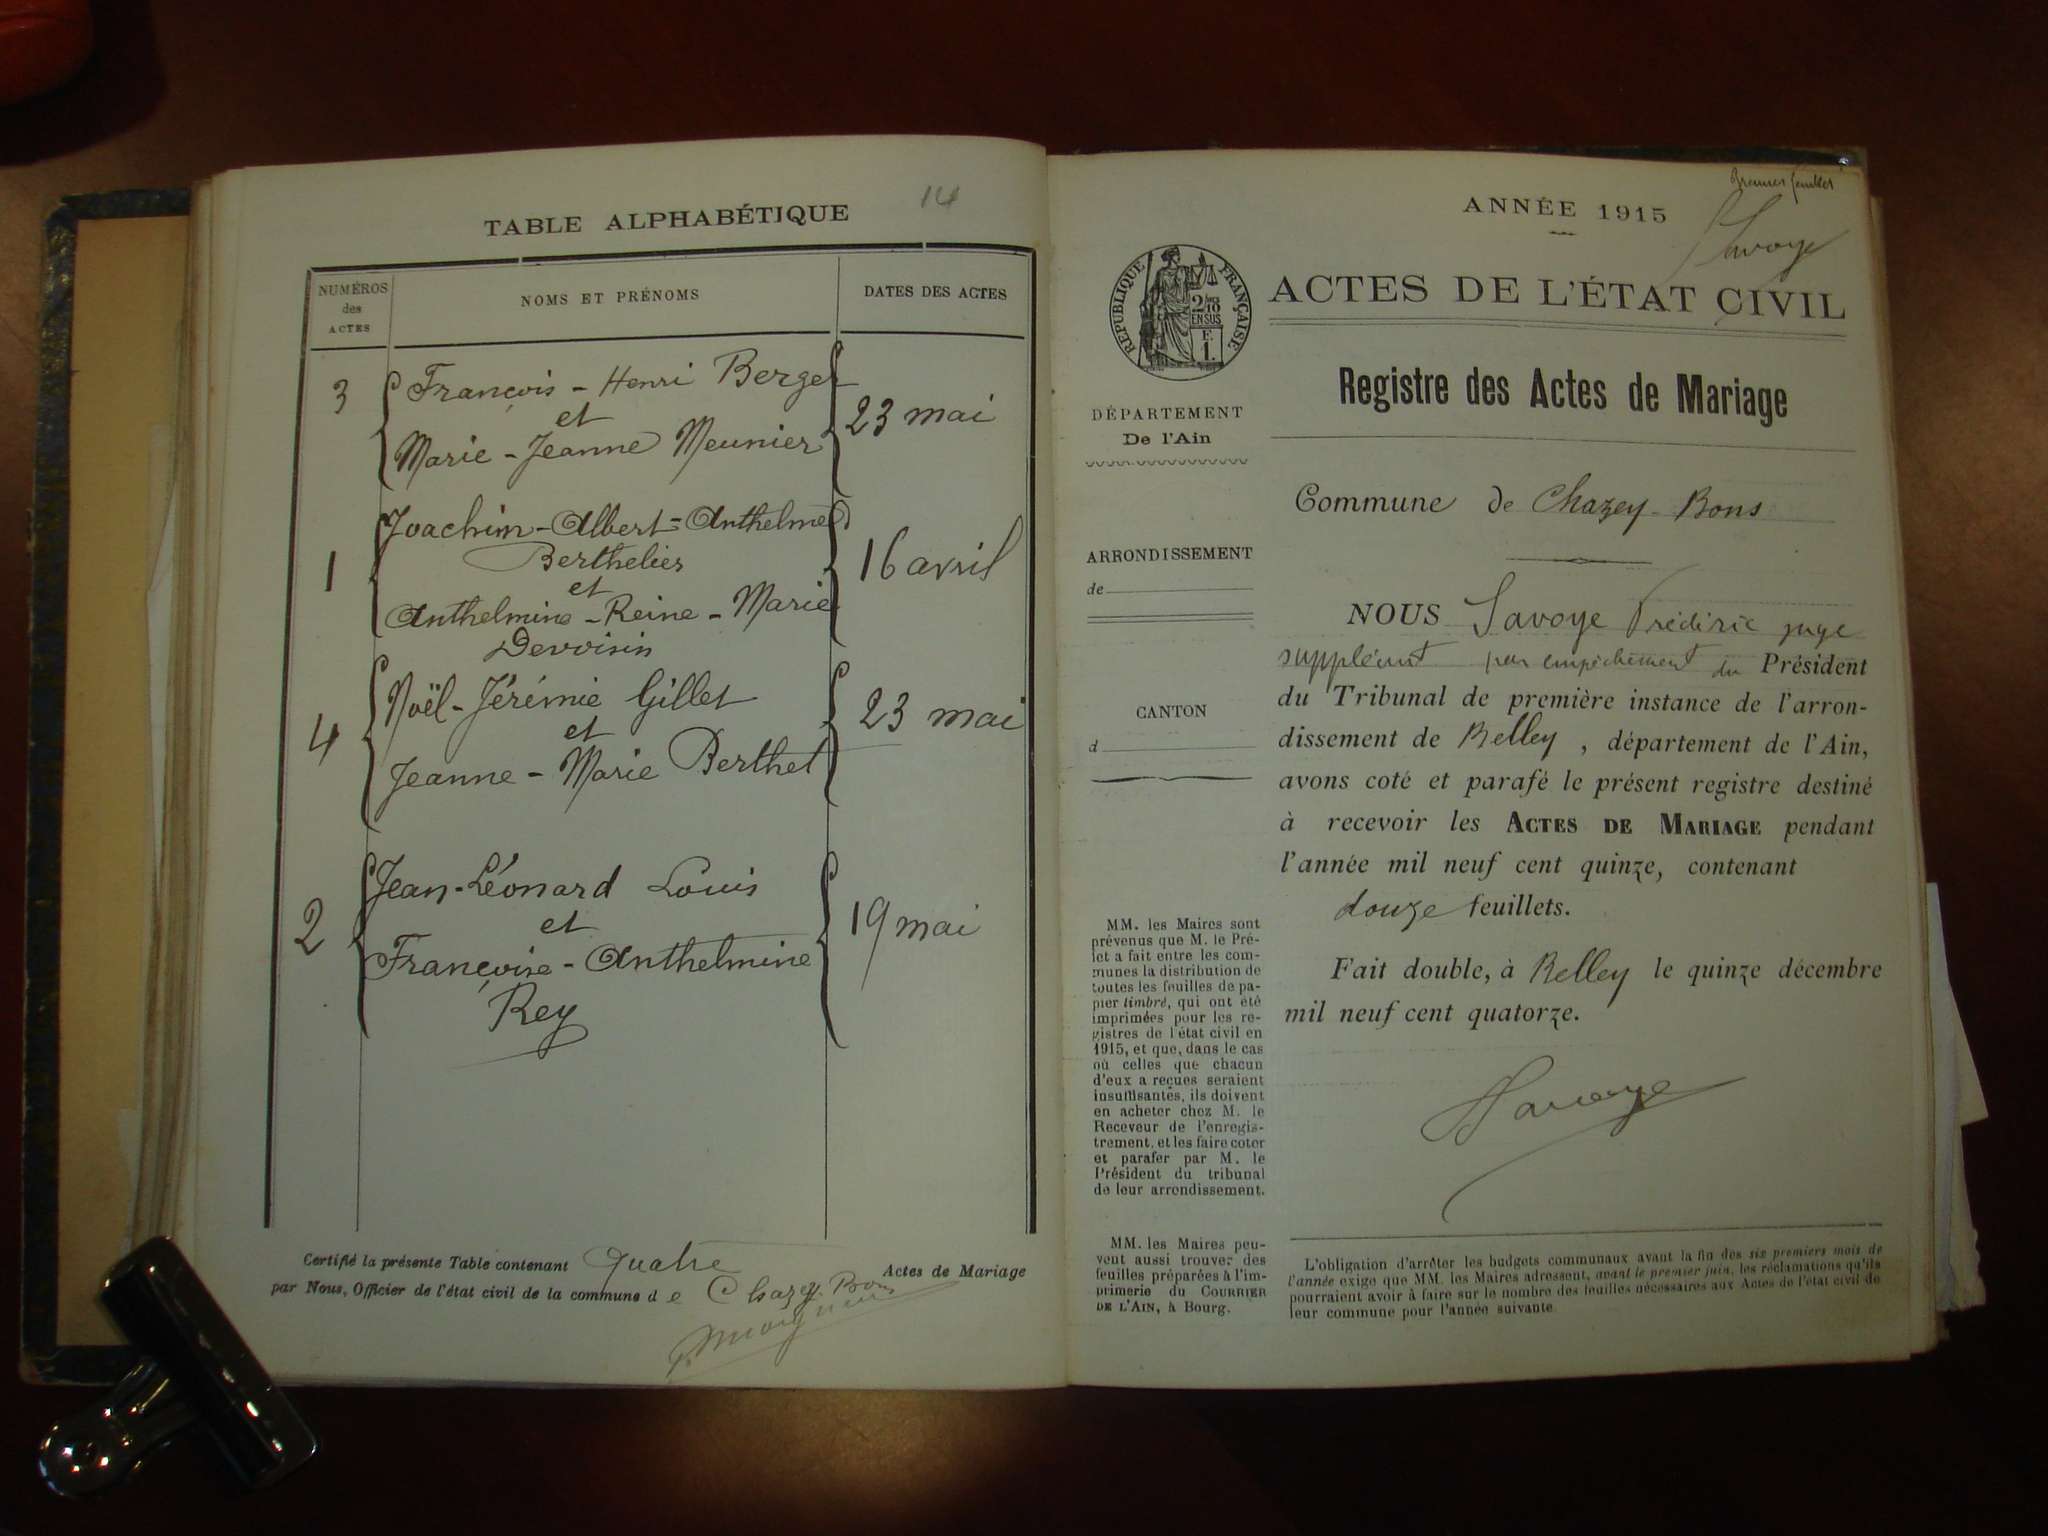 TABLE ALPHABÉTIQUE
14
NUMÉROS
des
ACTES
NOMS ET PRÉNOMS
DATES DES ACTES
3
François - Henri Berger
et
Marie - Jeanne Meunier
23 mai
1
Joachim - Albert - Anthelme
Berthelier
et
Anthelmine - Reine - Marie
Devoisin
16 avril
4
Noël - Jérémie Gillet
et
Jeanne - Marie Berthet
23 mai
2
Jean-Léonard Louis
et
Françoise - Anthelmine
Rey
19 mai
Certifié la présente Table contenant Quatre Actes de Mariage
par Nous, Officier de l'état civil de la commune de Chazey-Bons
Premier feuillet
Savoye
ANNÉE 1915
ACTES DE L'ÉTAT CIVIL
RÉPUBLIQUE FRANÇAISE
2/10
EN SUS
F.
1.
Registre des Actes de Mariage
DÉPARTEMENT
De l'Ain
Commune de Chazey-Bons
ARRONDISSEMENT
de
CANTON
d
NOUS Savoye Frédéric juge
suppléant par empêchement du Président
du Tribunal de première instance de l'arron-
dissement de Belley, département de l'Ain,
avons coté et parafé le présent registre destiné
à recevoir les ACTES DE MARIAGE pendant
l'année mil neuf cent quinze, contenant
douze feuillets.
Fait double, à Belley le quinze décembre
mil neuf cent quatorze.
Savoye
MM. les Maires sont
prévenus que M. le Pré-
fet a fait entre les com-
munes la distribution de
toutes les feuilles de pa-
pier timbré, qui ont été
imprimées pour les re-
gistres de l'état civil en
1915, et que, dans le cas
où celles que chacun
d'eux a reçues seraient
insuffisantes, ils doivent
en acheter chez M. le
Receveur de l'enregis-
trement, et les faire coter
et parafer par M. le
Président du tribunal
de leur arrondissement.
MM. les Maires peu-
vent aussi trouver des
feuilles préparées à l'im-
primerie du COURRIER
DE L'AIN, à Bourg.
L'obligation d'arrêter les budgets communaux avant la fin des six premiers mois de
l'année exige que MM. les Maires adressent, avant le premier juin, les réclamations qu'ils
pourraient avoir à faire sur le nombre des feuilles nécessaires aux Actes de l'état civil de
leur commune pour l'année suivante.